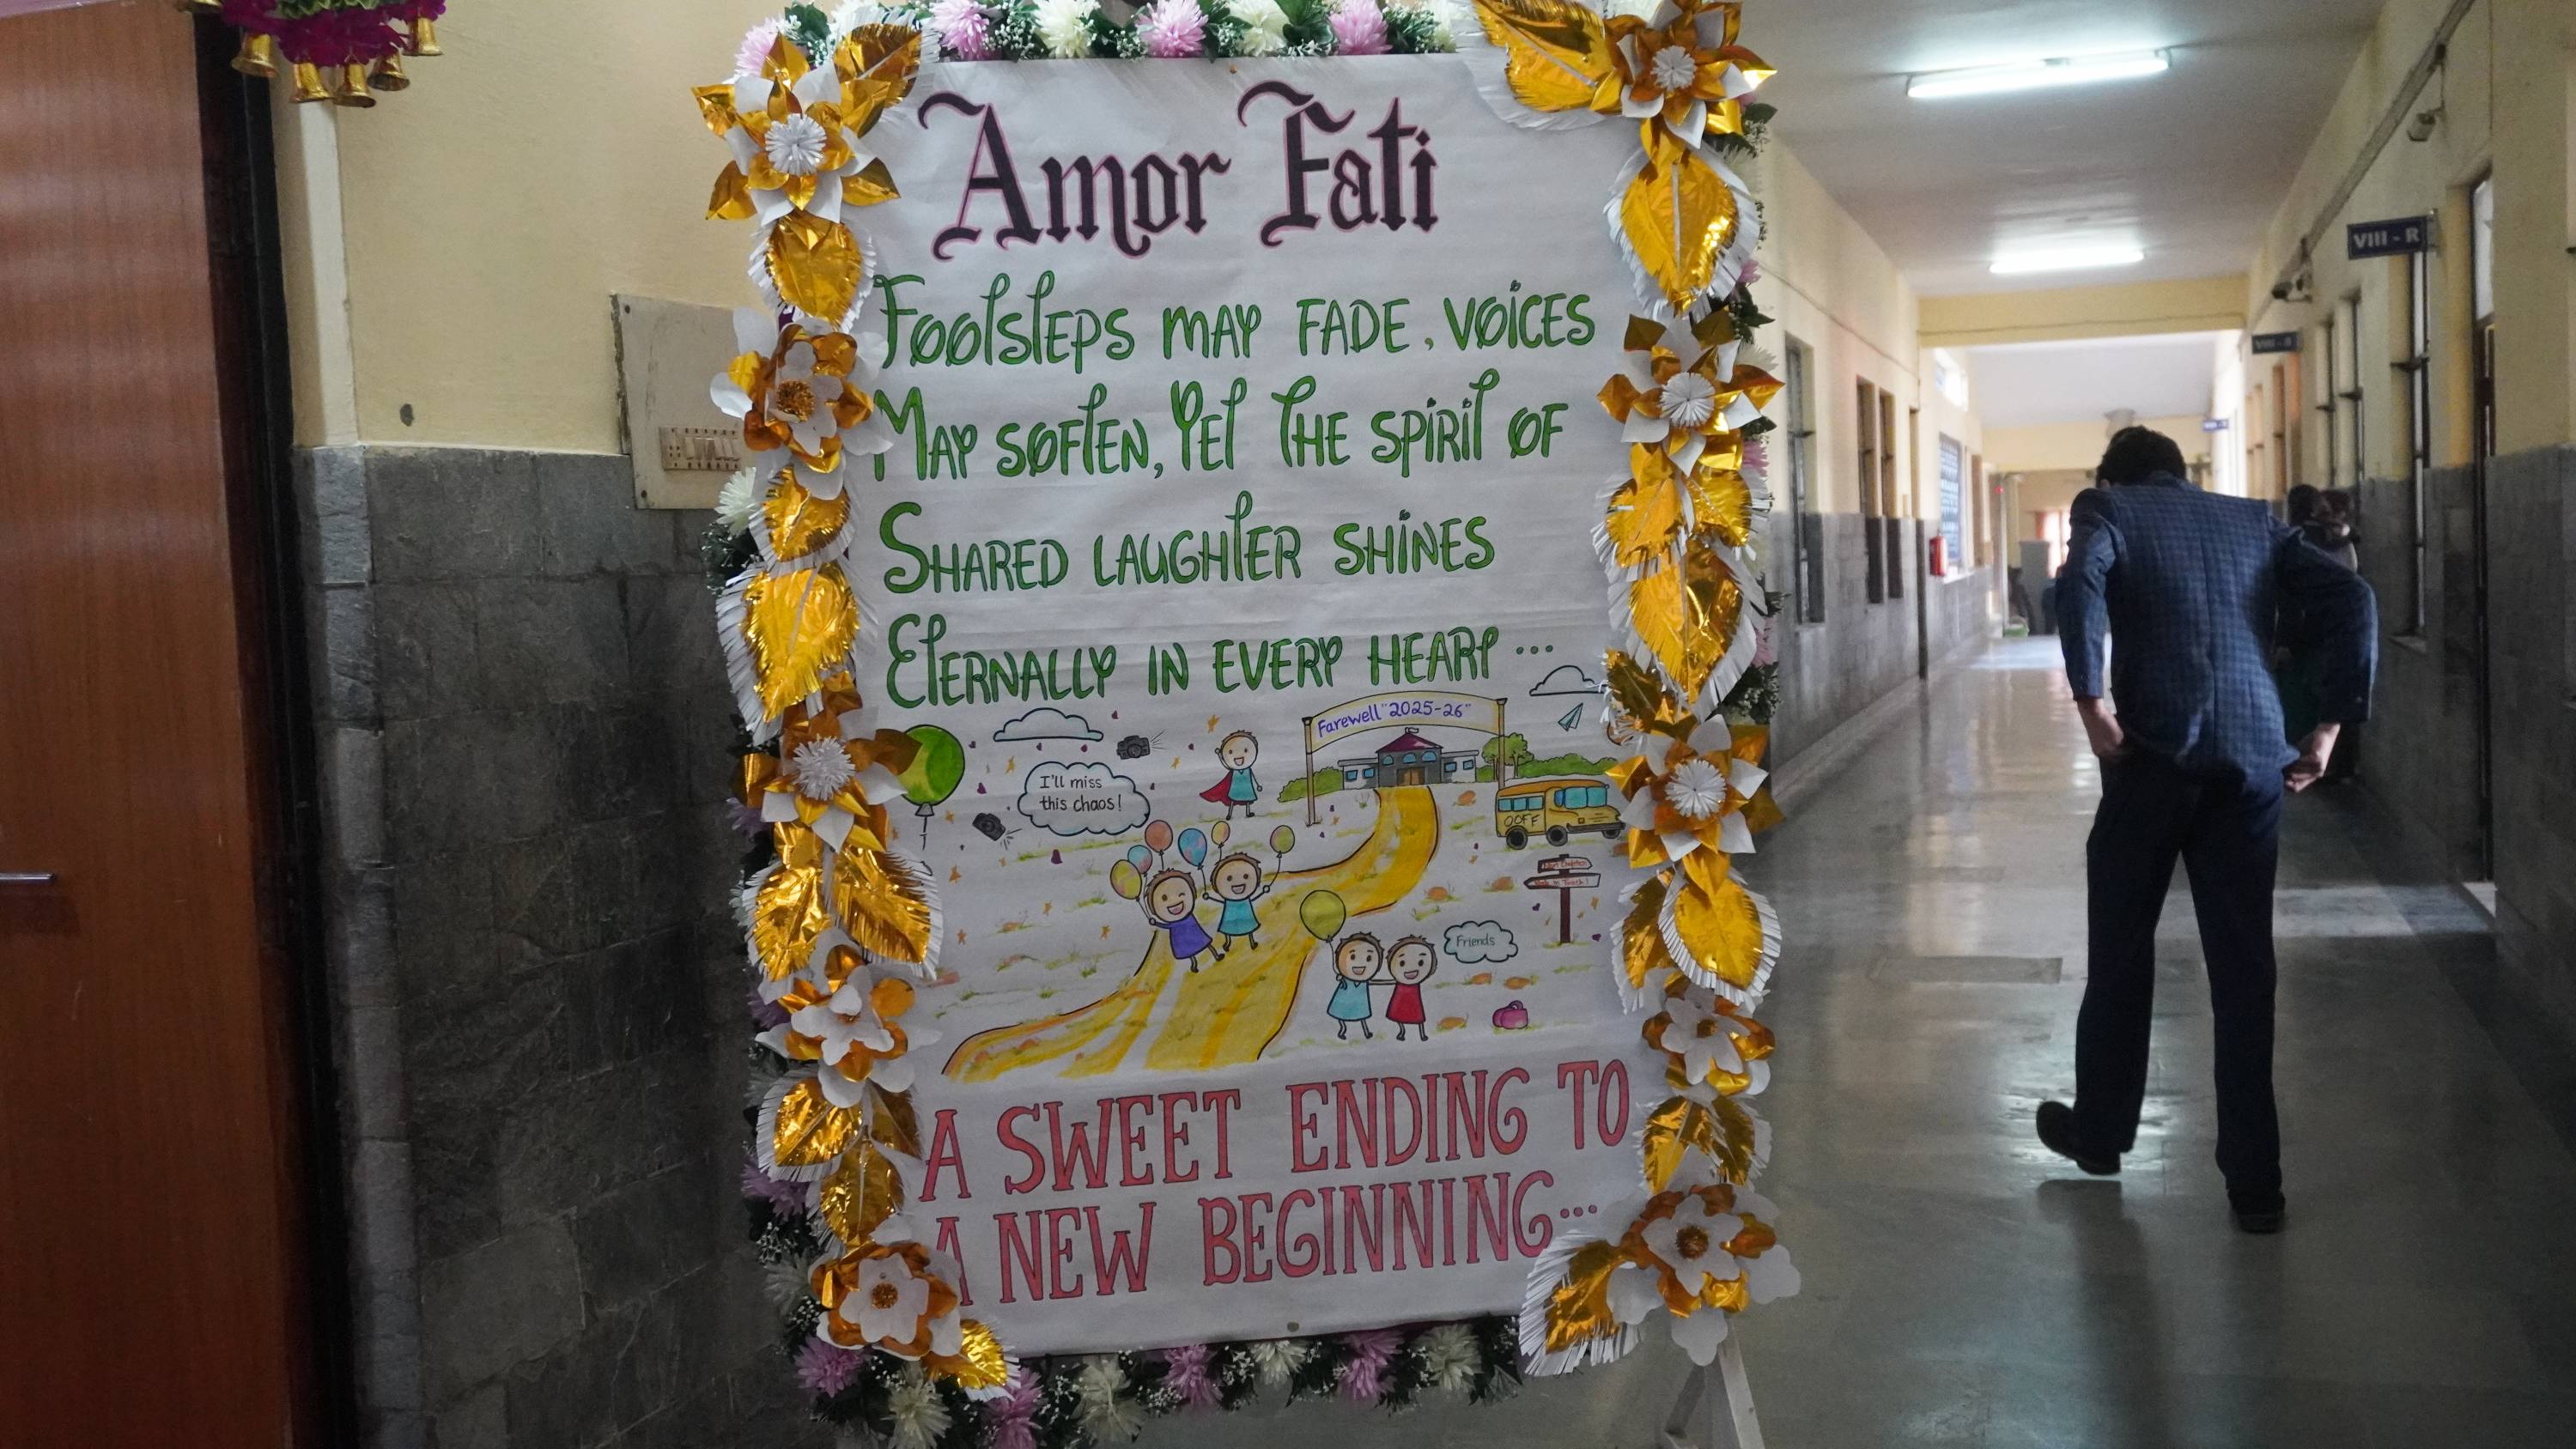 Amor Fati
Footsteps may fade, voices
May soften, Yet the spirit of
Shared laughter shines
Eternally in every heart...
Farewell "2025-26"
I'll miss
this chaos!
OOFF
Friends
A SWEET ENDING TO
A NEW BEGINNING...
VIII - R